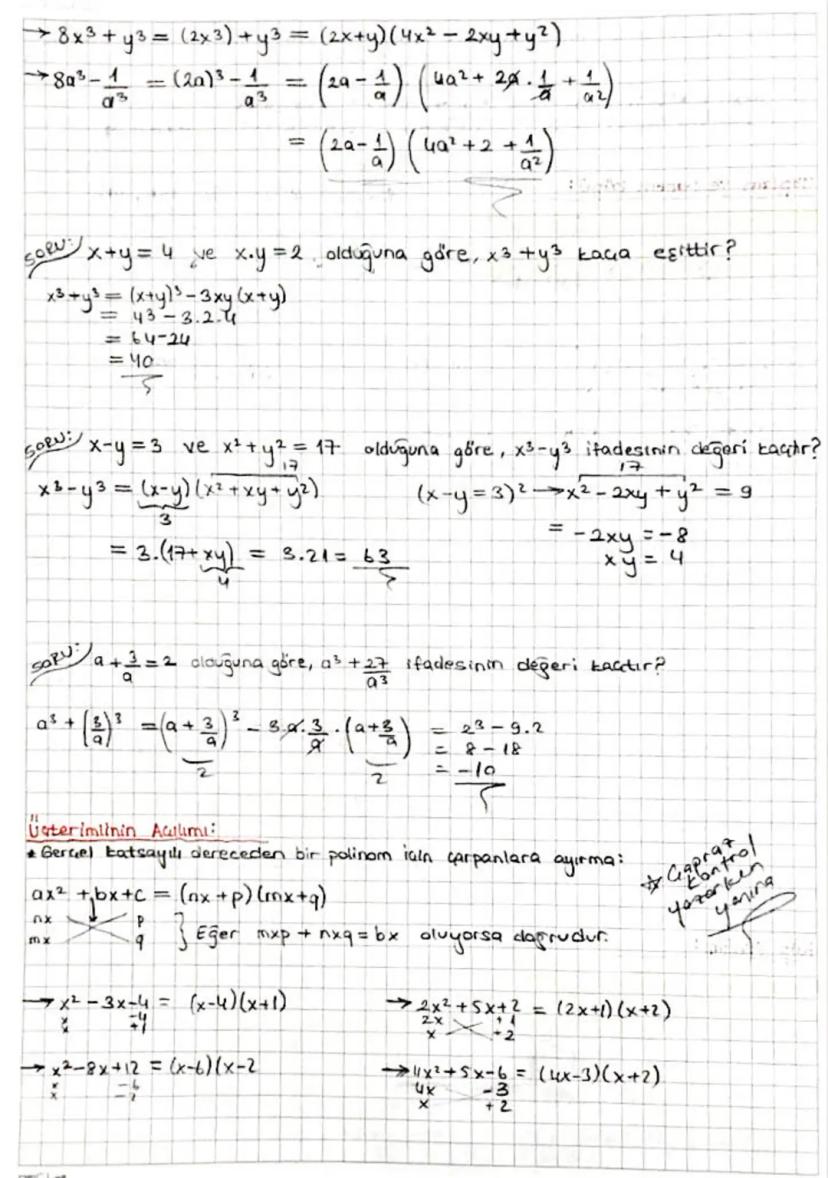 → 8x³ + y³ = (2x³) + y³ = (2x+y)(4x² - 2xy + y²)
→ 8a³ - 1/a³ = (2a)³ - 1/a³ = (2a - 1/a) . (4a² + 2a . 1/a + 1/a²)
= (2a - 1/a) (4a² + 2 + 1/a²)
SORU: x+y=4 ve x.y=2 olduğuna göre, x³+y³ kaça eşittir?
x³+y³ = (x+y)³ - 3xy(x+y)
= 4³ - 3.2.4
= 64-24
= 40
SORU: x-y=3 ve x²+y²=17 olduğuna göre, x³-y³ ifadesinin değeri kaçtır?
17 17
x³-y³ = (x-y)(x²+xy+y²) (x-y=3)² → x² - 2xy + y² = 9
3
= -2xy = -8
= 3.(17+xy) = 3.21 = 63 xy = 4
4
SORU: a + 3/a = 2 olduğuna göre, a³ + 27/a³ ifadesinin değeri kaçtır?
a³ + (3/a)³ = (a + 3/a)³ - 3.a.3/a.(a+3/a) = 2³ - 9.2
2 2 = 8 - 18
= -10
Üçterimlinin Açılımı:
* Gerçel katsayılı dereceden bir polinom için çarpanlara ayırma:
☆ Çapraz kontrol yazarken yanına
ax² + bx + c = (nx+p)(mx+q)
nx p
mx q } Eğer mxp + nxq = bx oluyorsa doğrudur.
→ x² - 3x - 4 = (x-4)(x+1)
x -4
x +1
→ 2x² + 5x + 2 = (2x+1)(x+2)
2x +1
x +2
→ x² - 8x + 12 = (x-6)(x-2
x -6
x -2
→ 4x² + 5x - 6 = (4x-3)(x+2)
4x -3
x +2